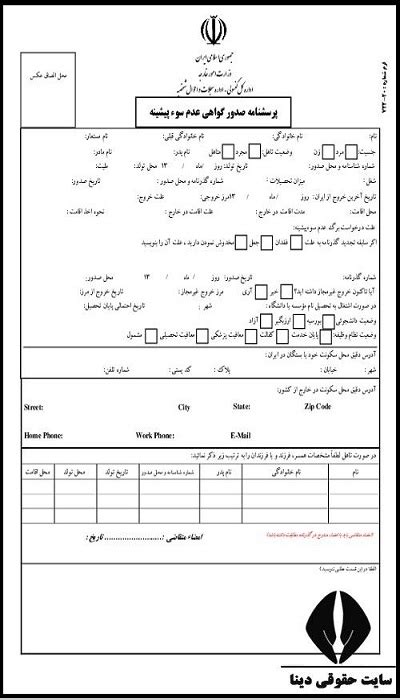 جمهوری اسلامی ایران
وزارت امور خارجه
اداره کل کنسولی - اداره سجلات و احوال شخصیه
محل الصاق عکس
فرم شماره: ۲۰۰-۷۲۲
پرسشنامه صدور گواهی عدم سوء پیشینه
نام: نام خانوادگی: نام خانوادگی قبلی: نام مستعار:
جنسیت: مرد زن وضعیت تاهل: مجرد متاهل نام پدر: نام مادر:
شماره شناسنامه و محل صدور: تاریخ تولد: روز /ماه / ۱۳ محل تولد: ملیت:
شغل: میزان تحصیلات : شماره گذرنامه و محل صدور: تاریخ صدور:
تاریخ آخرین خروج از ایران: روز /ماه /۱۳ مرز خروجی: علت خروج:
محل اقامت: مدت اقامت در خارج : علت اقامت در خارج: نحوه اخذ اقامت:
علت درخواست برگ عدم سوءپیشینه:
اگر سابقه تجدید گذرنامه به علت : فقدان جعل مخدوش نمودن دارید ، علت آن را بنویسید
شماره گذرنامه: تاریخ صدور: روز /ماه / ۱۳ محل صدور:
آیا تاکنون خروج غیرمجاز داشته اید؟ خیر آری مرز خروج غیرمجاز: تاریخ خروج از مرز:
در صورت اشتغال به تحصیل نام مؤسسه یا دانشگاه : شهر : تاریخ احتمالی پایان تحصیل:
وضعیت دانشجوئی: بورسیه ارزبگیر آزاد
وضعیت نظام وظیفه: پایان خدمت کفالت معافیت پزشکی معافیت تحصیلی مشمول
آدرس دقیق محل سکونت خود یا بستگان در ایران:
شهر : خیابان : پلاک : کد پستی: شماره تلفن:
آدرس دقیق محل سکونت در خارج از کشور:
Street: City State: Zip Code
Home Phone: Work Phone: E-Mail
در صورت تاهل لطفاً مشخصات همسر، فرزند و یا فرزندان را به ترتیب زیر ذکر نمائید:
نام نام خانوادگی نام پدر شماره شناسنامه و محل صدور تاریخ تولد محل تولد محل اقامت
امضاء متقاضی : ........................ تاریخ :
(لطفا در این قسمت مطلبی ننویسید)
سایت حقوقی دینا